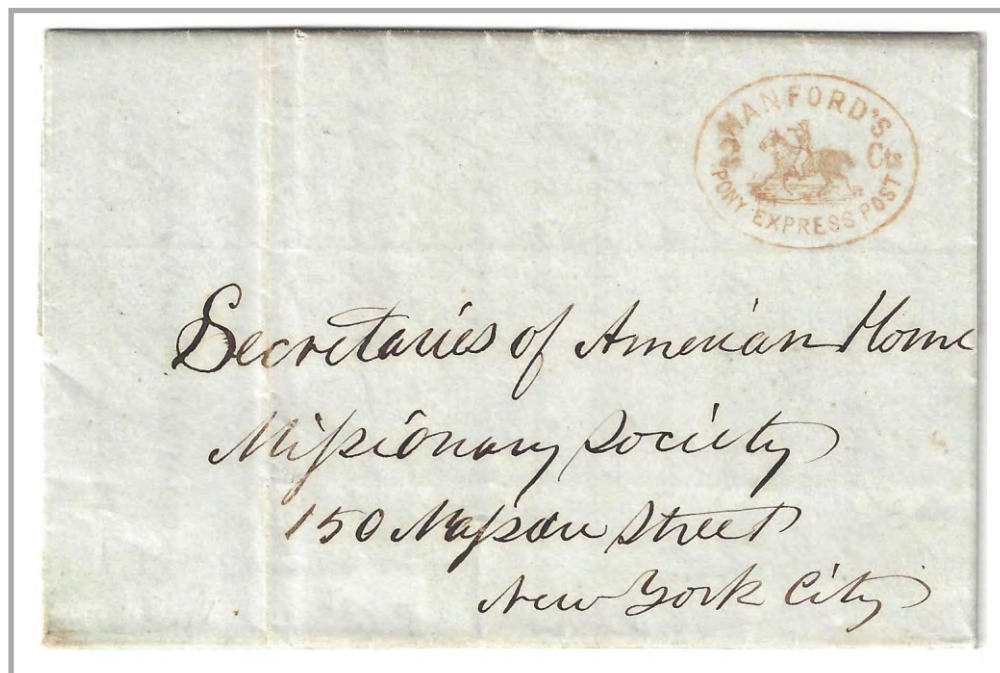 HANFORD'S
2 Cts
PONY EXPRESS POST
Secretaries of American Home
Missionary Society
150 Nassau Street
New York City